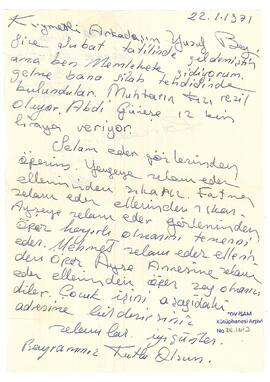 22.1.1971
Kıymetli Arkadaşım Yusuf Bey
Size Şubat tatilinde geldemiştik
ama ben Memlekete gidiyorum.
gelme bana silah tehdidinde
bulundular. Muhtarın kızı rezil
oluyor. Abdi Güvere 12 bin
liraya veriyor.
Selam eder gözlerinden
öperim. Yengeye selam eder
ellerinden sıkarız. Fatma
selam eder ellerinden sıkar.
Ayşeye selam eder gözlerinden
öper hayırlı olmasını temenni
eder. Mehmet selam eder ellerin
den öper Ayşe Annesine selam
eder ellerinden öper
diler. Çocuk işini aşağıdaki
adresime bildirirsiniz
selamlar iyi günler.
Bayramınız Kutlu Olsun.
TDV İSAM
Kütüphanesi Arşivi
No